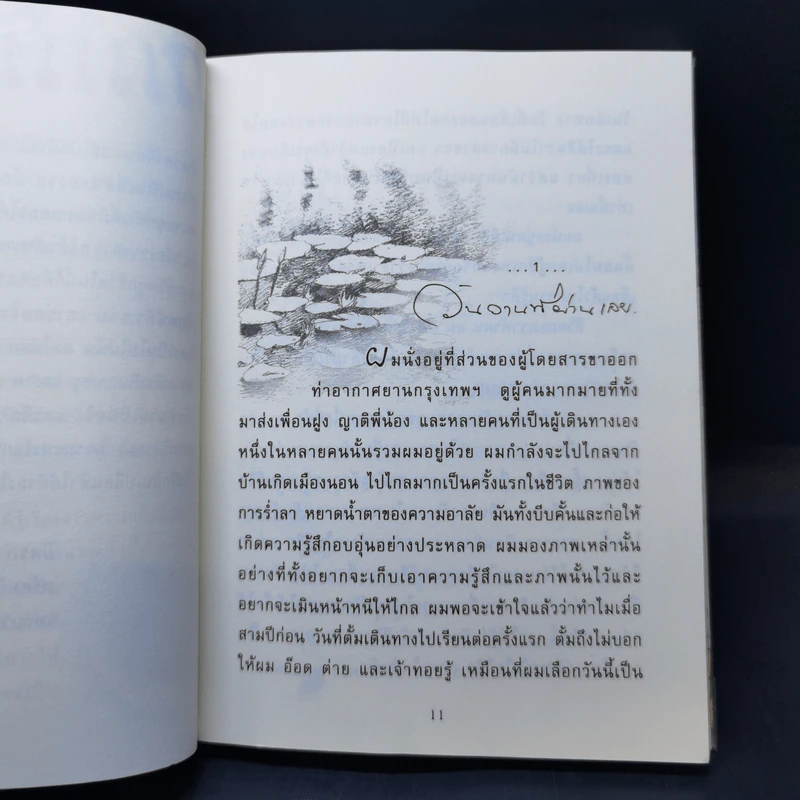 ...๑...
วันวานที่ผ่านเลย
ผมนั่งอยู่ที่ส่วนของผู้โดยสารขาออก
ท่าอากาศยานกรุงเทพฯ ดูผู้คนมากมายที่ทั้ง
มาส่งเพื่อนฝูง ญาติพี่น้อง และหลายคนที่เป็นผู้เดินทางเอง
หนึ่งในหลายคนนั้นรวมผมอยู่ด้วย ผมกำลังจะไปไกลจาก
บ้านเกิดเมืองนอน ไปไกลมากเป็นครั้งแรกในชีวิต ภาพของ
การร่ำลา หยาดน้ำตาของความอาลัย มันทั้งบีบคั้นและก่อให้
เกิดความรู้สึกอบอุ่นอย่างประหลาด ผมมองภาพเหล่านั้น
อย่างที่ทั้งอยากจะเก็บเอาความรู้สึกและภาพนั้นไว้และ
อยากจะเมินหน้าหนีให้ไกล ผมพอจะเข้าใจแล้วว่าทำไมเมื่อ
สามปีก่อน วันที่ตั้มเดินทางไปเรียนต่อครั้งแรก ตั้มถึงไม่บอก
ให้ผม อ๊อด ต่าย และเจ้าทอยรู้ เหมือนที่ผมเลือกวันนี้เป็น
11